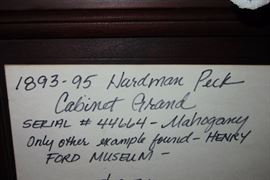 1893-95 Hardman Peck
Cabinet Grand
SERIAL # 44664 - Mahogany
Only other example found - HENRY
FORD MUSEUM -